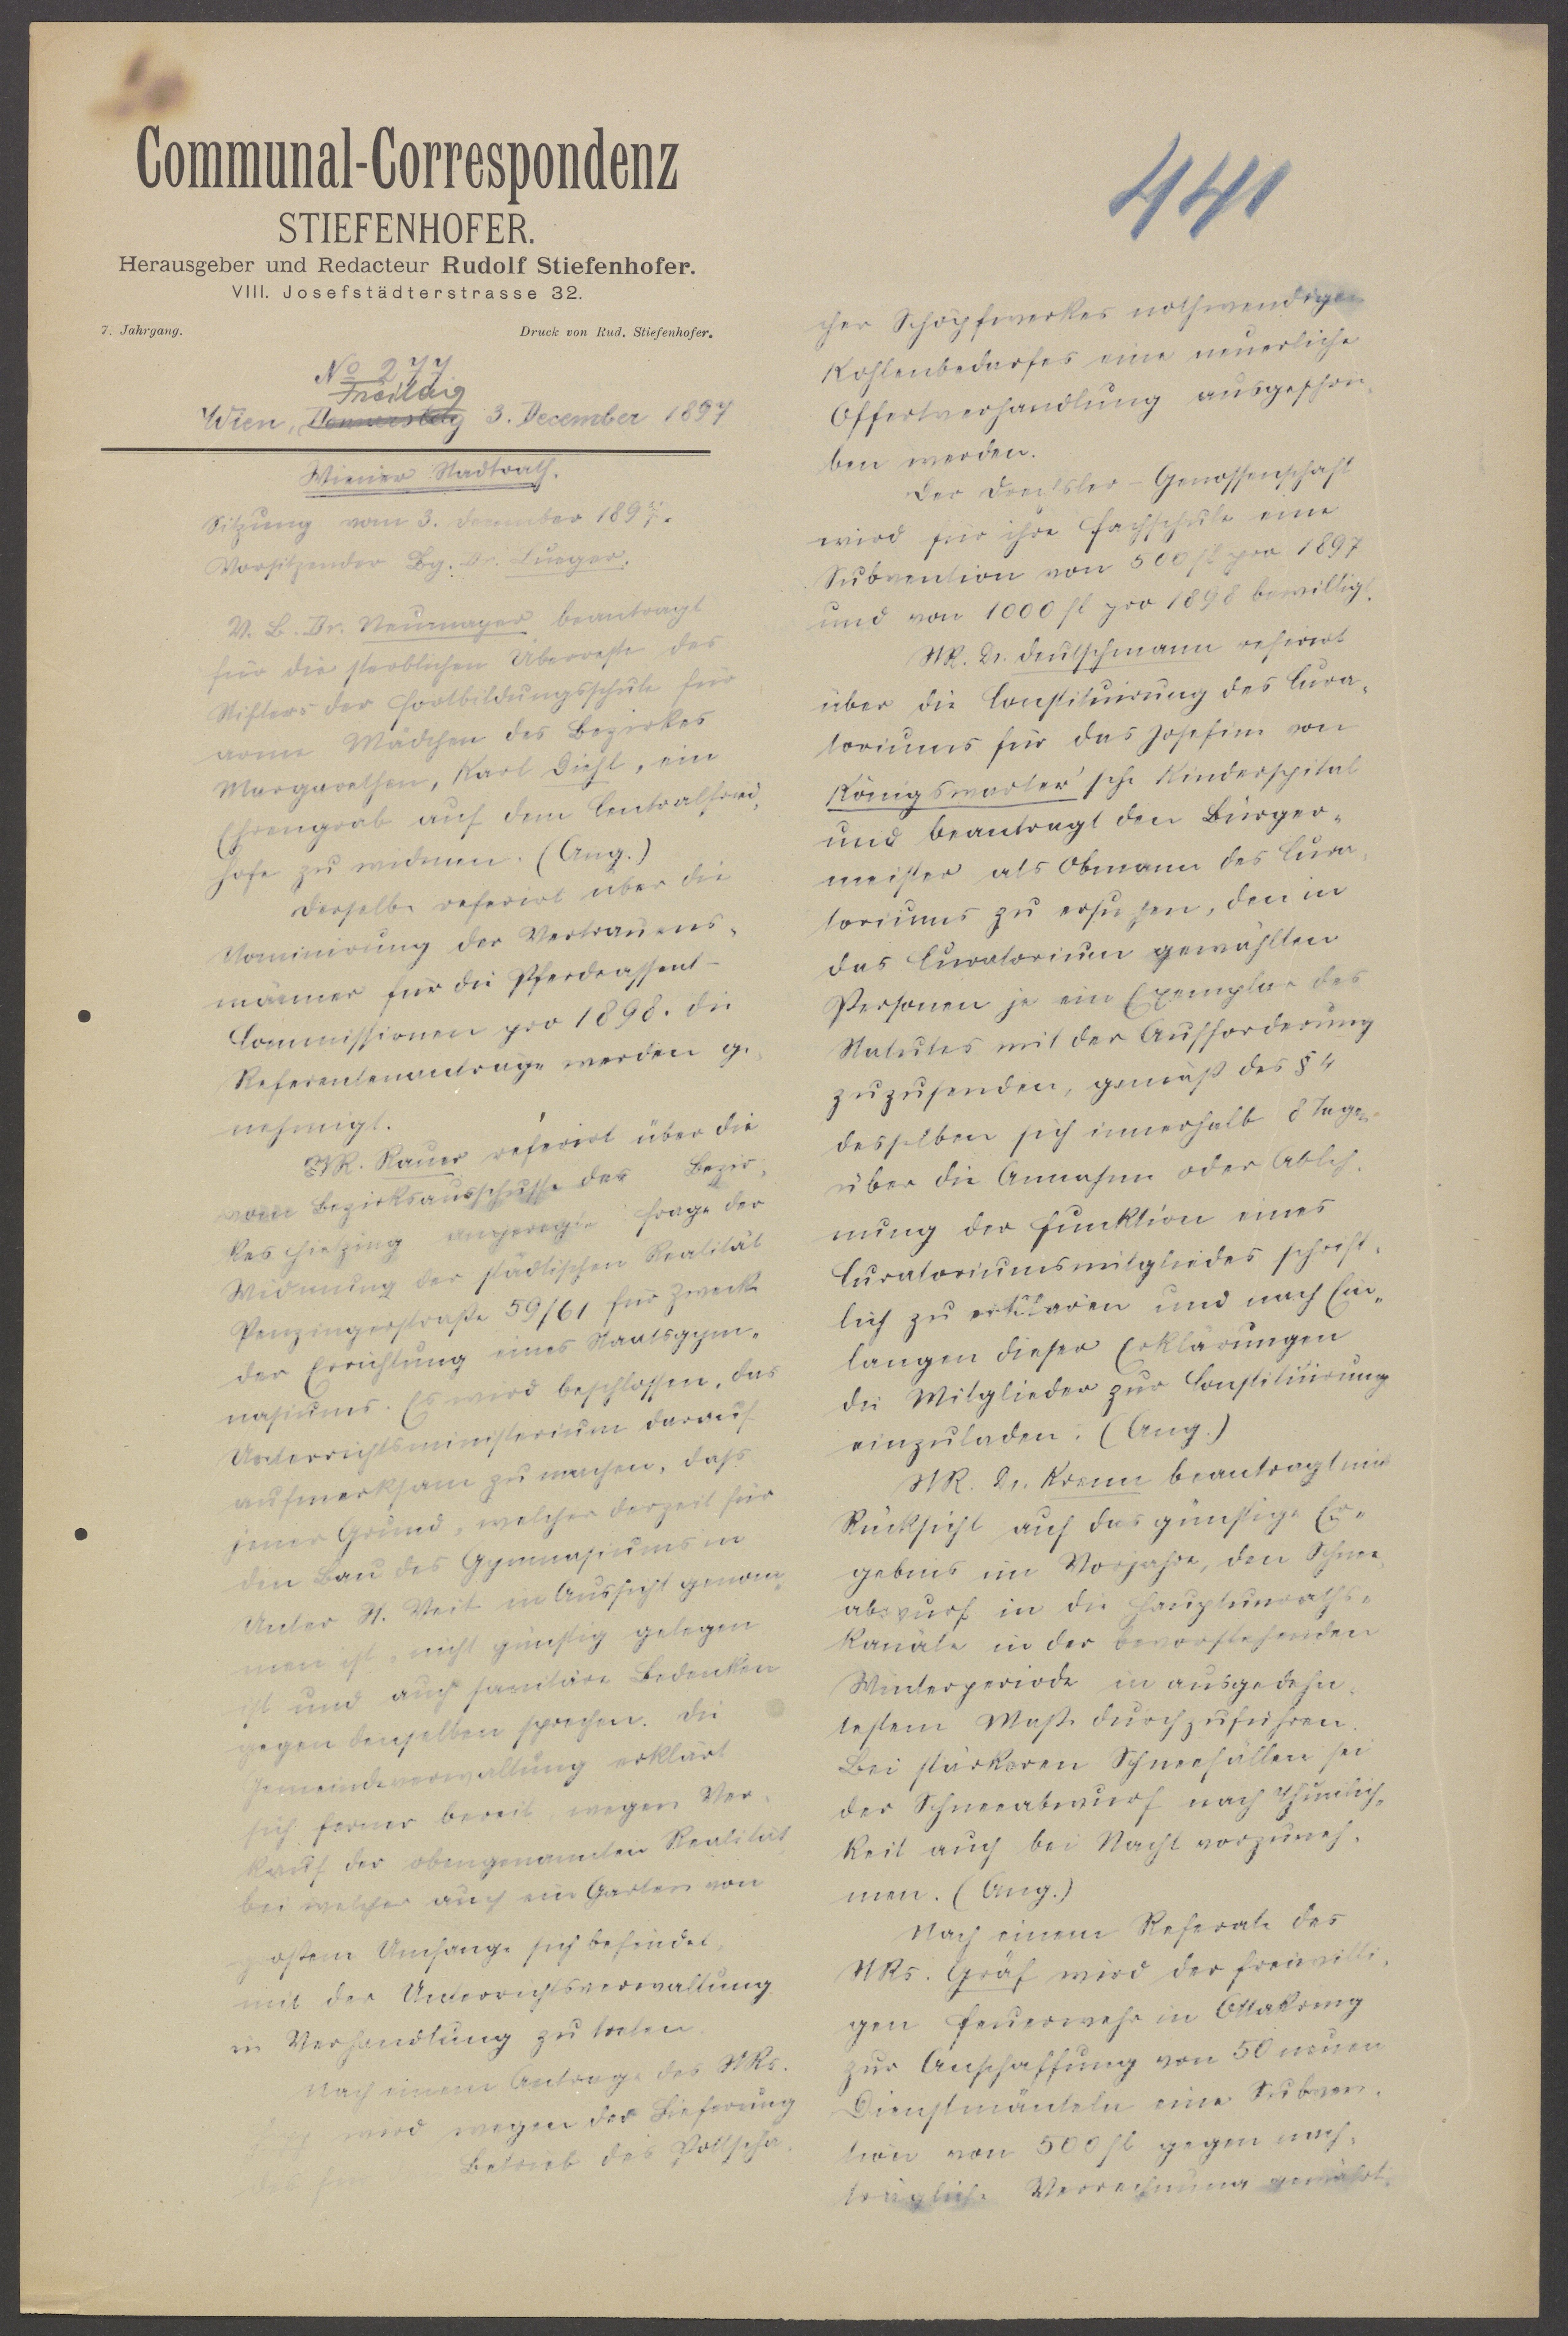 Communal-Correspondenz
STIEFENHOFER.
Herausgeber und Redacteur Rudolf Stiefenhofer.
VIII. Josefstädterstrasse 32.
7. Jahrgang. Druck von Rud. Stiefenhofer.
No 277
Freitag
Wien, Donnerstag 3. December 1897
Wiener Stadtrath.
Sitzung vom 3. December 1897.
Vorsitzender Bg. Dr. Lueger.
V. B. Dr. Neumayer beantragt
für die sterblichen Überreste des
Stifters der Fortbildungsschule für
arme Mädchen des Bezirkes
Margarethen, Karl Diehl, ein
Ehrengrab auf dem Centralfried-
hofe zu widmen. (Ang.)
Derselbe referirt über die
Nominirung der Vertrauens-
männer für die Pferdeassent-
Commissionen pro 1898. Die
Referentenantrage werden ge-
nehmigt.
StR. Rauer referirt über die
vom Bezirksausschusse des Bezir-
kes Hietzing angeregte Frage der
Widmung der städtischen Realität
Penzingerstraße 59/61 für Zwecke
der Errichtung eines Staatsgym-
nasiums. Es wird beschlossen, das
Unterrichtsministerium darauf
aufmerksam zu machen, dass
jener Grund, welcher derzeit für
den Bau des Gymnasiums in
Unter St. Veit in Aussicht genom-
men ist, nicht günstig gelegen
ist und auch sanitäre Bedenken
gegen denselben sprechen. Die
Gemeindeverwaltung erklärt
sich ferner bereit, wegen Ver-
kauf der obengenannten Realität,
bei welcher auch ein Garten von
großem Umfange sich befindet,
mit der Unterrichtsverwaltung
in Verhandlung zu treten.
Nach einem Antrage des StRs.
wird wegen der Lieferung
des für Betrieb des Pottscha-
441
cher Schöpfwerkes nothwendigen
Kohlenbedarfes eine neuerliche
Offertverhandlung ausgeschrie-
ben werden.
Der Drechsler-Genossenschaft
wird für ihre Fachschule eine
Subvention von 500 fl pro 1897
und von 1000 fl pro 1898 bewilligt.
StR. Dr. Deutschmann referirt
über die Constituirung des Cura-
toriums für das Josefine von
Königswarter'sche Kinderspital
und beantragt den Bürger-
meister als Obmann des Cura-
toriums zu ersuchen, den in
das Curatorium gewählten
Personen je ein Exemplar des
Statutes mit der Aufforderung
zuzusenden, gemäß des § 4
desselben sich innerhalb 8 Tagen
über die Annahme oder Ableh-
nung der Funktion eines
Curatoriumsmitgliedes schrift-
lich zu erklären und nach Ein-
langen dieser Erklärungen
die Mitglieder zur Constituirung
einzuladen. (Ang.)
StR. Dr. Krenn beantragt mit
Rücksicht auf das günstige Er-
gebnis im Vorjahre, den Schnee-
abwurf in die Hauptunraths-
kanäle in der bevorstehenden
Winterperiode in ausgedehn-
testem Maße durchzuführen.
Bei stärkeren Schneefällen sei
der Schneeabwurf nach Thunlich-
keit auch bei Nacht vorzuneh-
men. (Ang.)
Nach einem Referate des
StRs. Gräf wird der freiwilli-
gen Feuerwehr in Ottakring
zur Anschaffung von 50 neuen
Dienstmänteln eine Subven-
tion von 500 fl gegen nach-
trägliche Verrechnung gewährt.